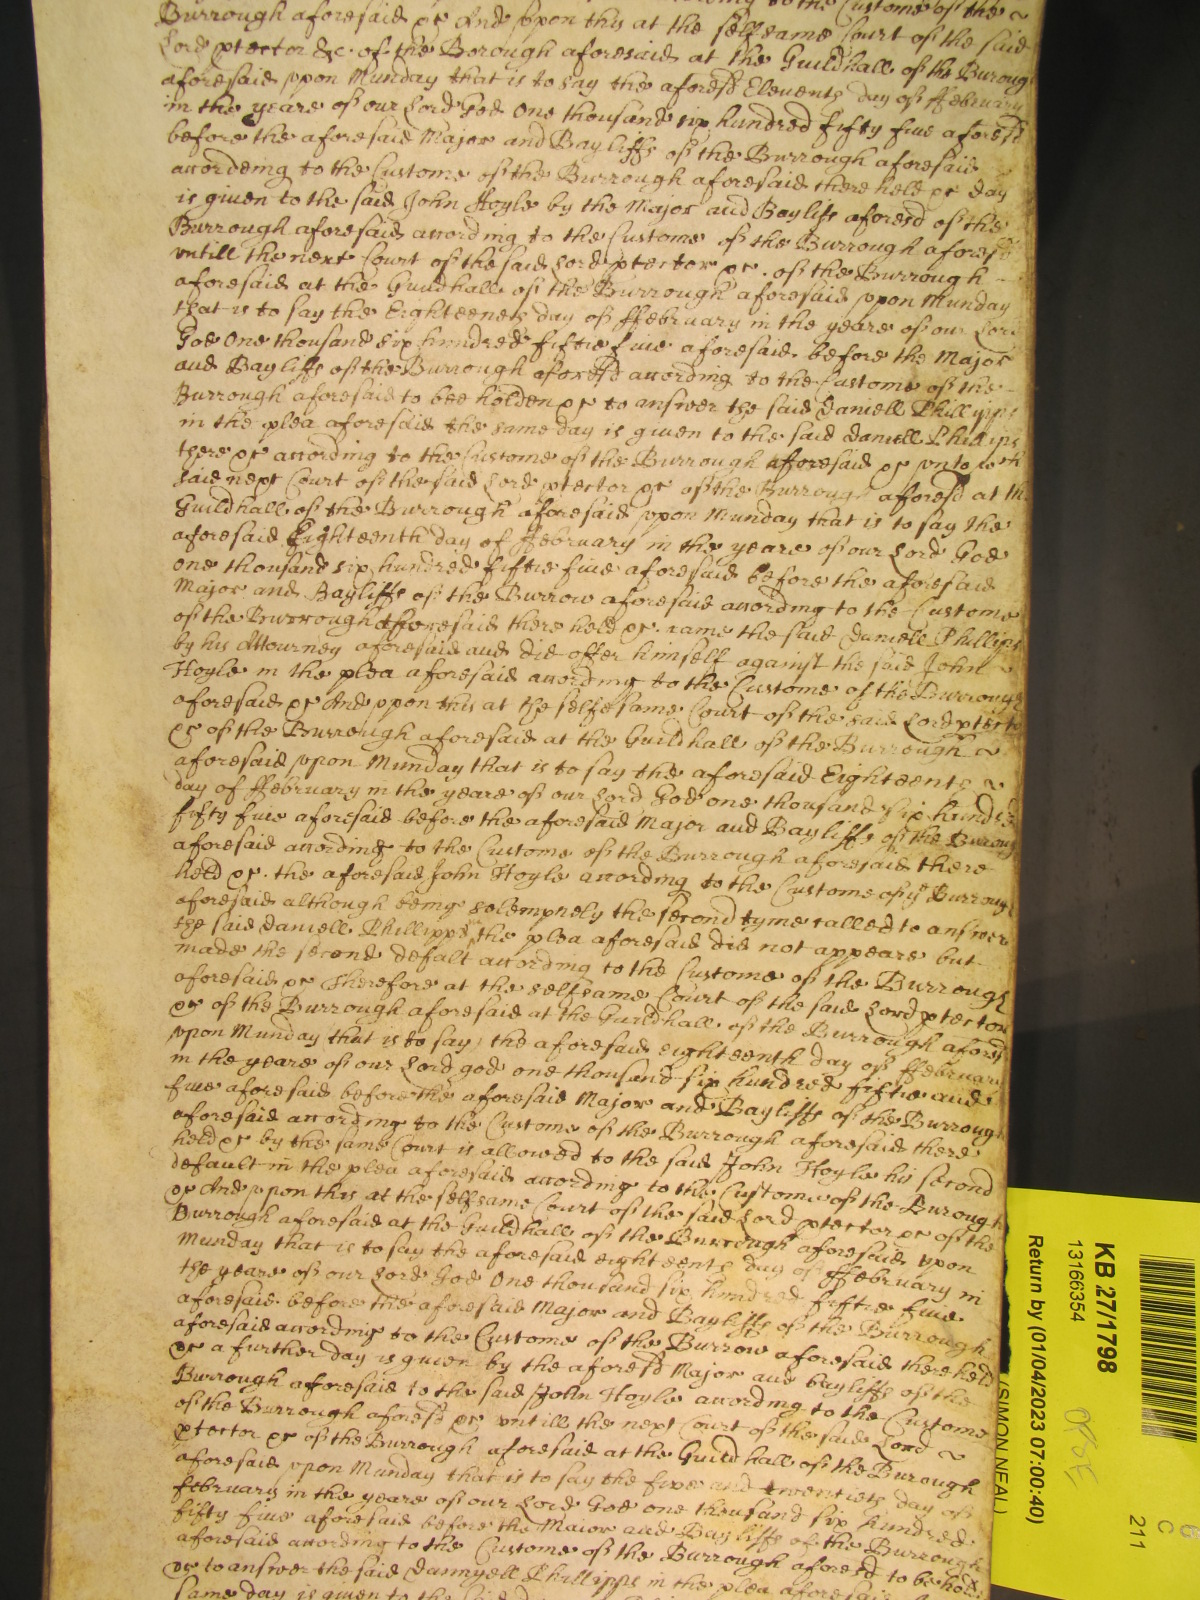 Burrough aforesaid &c And upon this at the selfsame Court of the said
Lord ptector &c of the Borough aforesaid at the Guildhall of the Buroug
aforesaid upon Munday that is to say the aforesd Eleventh day of ffebruary
in the yeare of our Lord God One thousand six hundred fifty five aforesd
before the aforesaid Major and Bayliffs of the Burrough aforesaid
according to the Custome of the Burrough aforesaid there held &c day
is given to the said John Hoyle by the Major and Bayliffs aforesd of the
Burrough aforesaid according to the Custome of the Burrough aforesd
untill the next Court of the said Lord ptector &c. of the Burrough
aforesaid at the Guildhall of the Burrough aforesaid upon Munday
that is to say the Eighteenth day of ffebruary in the yeare of our Lord
God One thousand six hundred fiftie five aforesaid before the Major
and Bayliffs of the Burrough aforesd according to the Custome of the
Burrough aforesaid to bee holden &c to answer the said Daniell Phillipps
in the plea aforesaid the same day is given to the said Daniell Phillips
there &c according to the Custome of the Burrough aforesaid &c unto
said next Court of the said Lord ptector &c of the Burrough aforesd at the
Guildhall of the Burrough aforesaid upon Munday that is to say the
aforesaid Eighteenth day of ffebruary in the yeare of our Lord God
one thousand six hundred fiftie five aforesaid before the aforesaid
Major and Bayliffs of the Burrow aforesaid according to the Custome
of the Burrough aforesaid there held &c. came the said Daniell Phillips
by his Attourney aforesaid and did offer himself against the said John
Hoyle in the plea aforesaid according to the Custome of the Burroug
aforesaid &c And upon this at the selfe same Court of the said Lord ptecto
&c of the Burrough aforesaid at the Guildhall of the Burrough
aforesaid upon Munday that is to say the aforesaid Eighteenth
day of ffebruary in the yeare of our Lord God one thousand six hundred
fifty five aforesaid before the aforesaid Major and Bayliffs of the Burroug
aforesaid according to the Custome of the Burrough aforesaid there
held &c. the aforesaid John Hoyle according to the Custome of ye Burroug
aforesaid although being solempnely the second tyme called to answere
the said Daniell Phillipps in the plea aforesaid did not appeare but
made the second defalt according to the Custome of the Burrough
aforesaid &c Therefore at the selfsame Court of the said Lord ptector
&c of the Burrough aforesaid at the Guildhall of the Burrough aforesd
upon Munday that is to say the aforesaid eighteenth day of ffebruary
in the yeare of our Lord god one thousand six hundred fiftie and
five aforesaid before the aforesaid Major and Bayliffs of the Burroug
aforesaid according to the Custome of the Burrough aforesaid there
held &c by the same Court is allowed to the said John Hoyle his second
default in the plea aforesaid according to the Custome of the Burough
&c And upon this at the selfsame Court of the said Lord ptector &c of the
Burrough aforesaid at the Guildhall of the Burrough aforesaid upon
Munday that is to say the aforesaid eighteenth day of ffebruary in
the yeare of our Lord God One thousand six hundred fiftie five
aforesaid before the aforesaid Major and Bayliffs of the Burrough
aforesaid according to the Custome of the Burrow aforesaid there held
&c a further day is given by the aforesd Major and bayliffs of the
Burrough aforesaid to the said John Hoyle according to the Custome
of the Burrough aforesd &c untill the next Court of the said Lord
ptector &c of the Burrough aforesaid at the Guildhall of the Burough
aforesaid upon Munday that is to say the five and twentieth day of
february in the yeare of our Lord God one thousand six hundred
fifty five aforesaid before the Maior and Bayliffs of the Burrough
aforesaid according to the Custome of the Burrough aforesd to be
&c to answer the said Dannyell Phillipps in the plea aforesaid
same day is given to the said
KB 27/1798
13166354
Return by (01/04/2023 07:00:40)
(SIMON NEAL)
C
211